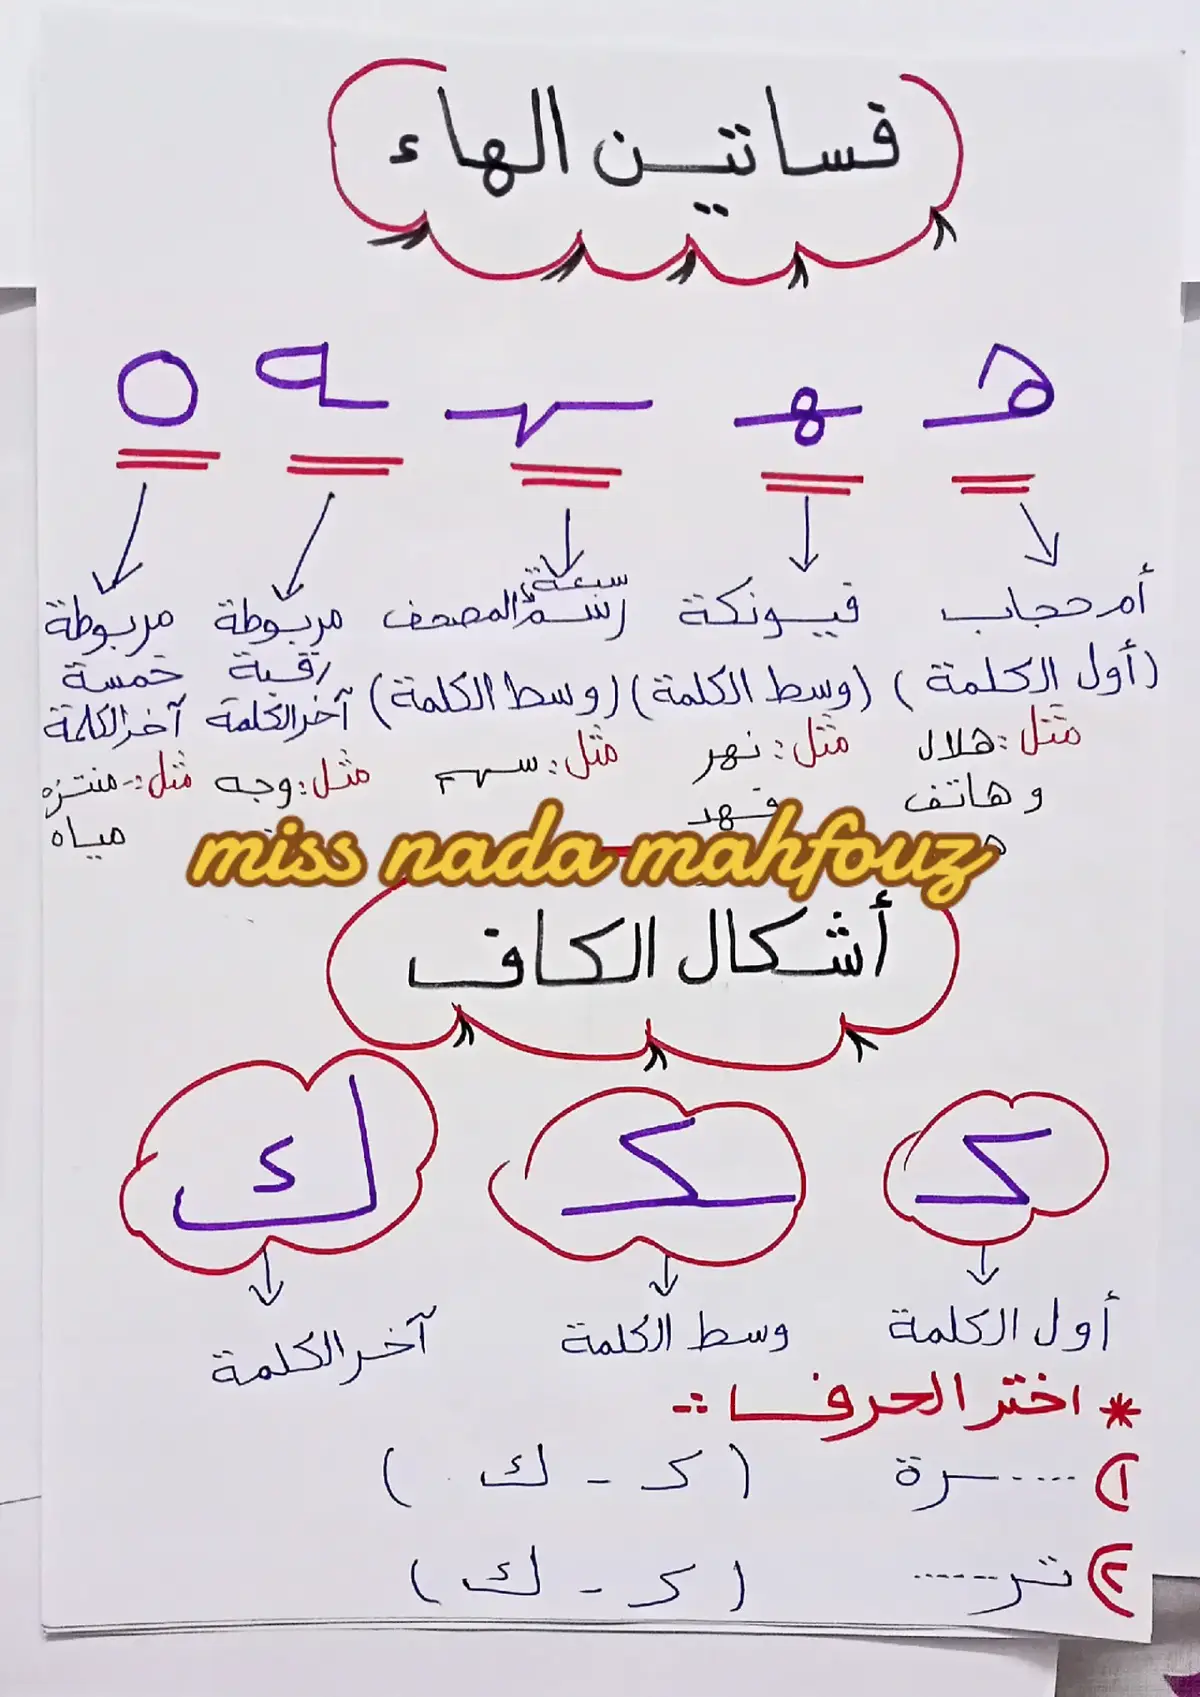 فساتين الهاء
هـ ـهـ ـهـ ـه ه
أم حجاب
(أول الكلمة)
مثل: هلال
و هاتف
فيونكة
(وسط الكلمة)
مثل: نهر
فهد
سبعة
رسم المصحف
(وسط الكلمة)
مثل: سهم
مربوطة
رقبة
آخر الكلمة
مثل: وجه
مربوطة
خمسة
آخر الكلمة
مثل:- منتزه
مياه
miss nada mahfouz
أشكال الكاف
كـ ـكـ ك
أول الكلمة وسط الكلمة آخر الكلمة
* اختر الحرف :-
١) ......ـرة ( كـ - ك )
٢) تر...... ( كـ - ك )